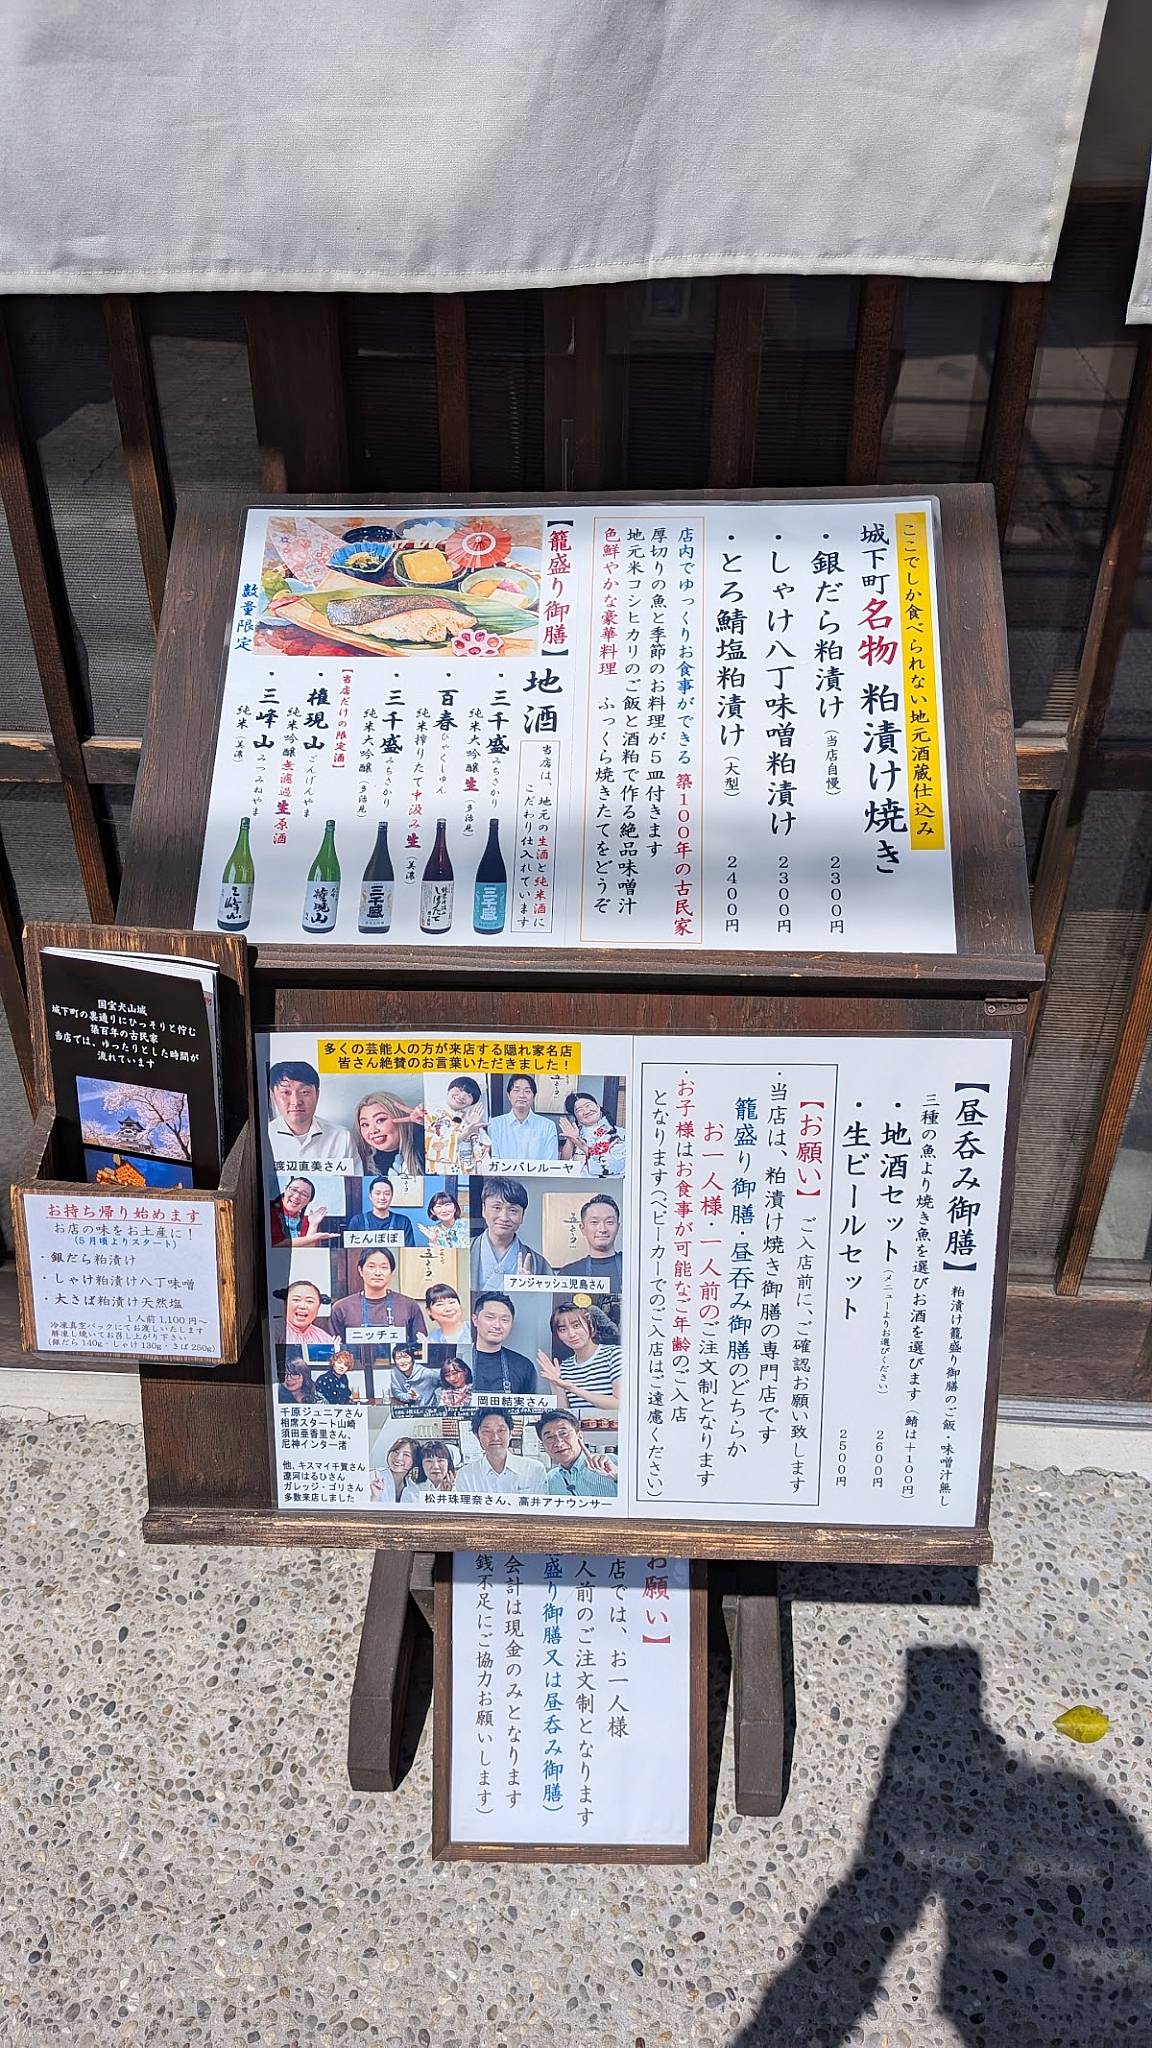 ここでしか食べられない地元酒蔵仕込み
城下町名物 粕漬け焼き
・銀だら粕漬け(当店自慢) 2300円
・しゃけ八丁味噌粕漬け 2300円
・とろ鯖塩粕漬け(大型) 2400円
店内でゆっくりお食事ができる 築100年の古民家
厚切りの魚と季節のお料理が5皿付きます
地元米コシヒカリのご飯と酒粕で作る絶品味噌汁
色鮮やかな豪華料理 ふっくら焼きたてをどうぞ
【籠盛り御膳】
数量限定
地酒
当店は、地元の生酒と純米酒に
こだわり仕入れています
・三千盛 みちさかり
純米大吟醸 生(多治見)
・百春 ひゃくしゅん
純米搾りたて中汲み生(美濃)
・三千盛 みちさかり
純米大吟醸(多治見)
【当店だけの限定酒】
・権現山 ごんげんやま
純米吟醸無濾過生原酒
・三峰山 みつみねやま
純米(美濃)
国宝犬山城
城下町の裏通りにひっそりと佇む
築百年の古民家
当店では、ゆったりとした時間が
流れています
お持ち帰り始めます
お店の味をお土産に!
(5月頃よりスタート)
・銀だら粕漬け
・しゃけ粕漬け八丁味噌
・大さば粕漬け天然塩
1人前1,100円~
冷凍真空パックにてお渡しいたします
解凍し焼いてお召し上がり下さい
(銀だら140g・しゃけ130g・さば250g)
【昼呑み御膳】 粕漬け籠盛り御膳のご飯・味噌汁無し
三種の魚より焼き魚を選びお酒を選びます(鯖は+100円)
・地酒セット(メニューよりお選びください) 2600円
・生ビールセット 2500円
【お願い】 ご入店前に、ご確認お願い致します
・当店は、粕漬け焼き御膳の専門店です
籠盛り御膳・昼呑み御膳のどちらか
お一人様・一人前のご注文制となります
・お子様はお食事が可能なご年齢のご入店
となります(ベビーカーでのご入店はご遠慮ください)
多くの芸能人の方が来店する隠れ家名店
皆さん絶賛のお言葉いただきました!
渡辺直美さん
ガンバレルーヤ
たんぽぽ
アンジャッシュ児島さん
ニッチェ
岡田結実さん
千原ジュニアさん
相席スタート山崎
須田亜香里さん、
尼神インター渚
他、キスマイ千賀さん
遼河はるひさん
ガレッジ・ゴリさん
多数来店しました
松井珠理奈さん、高井アナウンサー
お願い】
店では、お一人様
人前のご注文制となります
盛り御膳又は昼呑み御膳)
会計は現金のみとなります
銭不足にご協力お願いします)